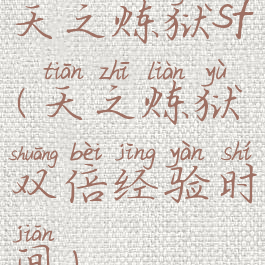 天之炼狱sf
tiān zhī liàn yù
(天之炼狱
shuāng bèi jīng yàn shí
双倍经验时
jiān
间)